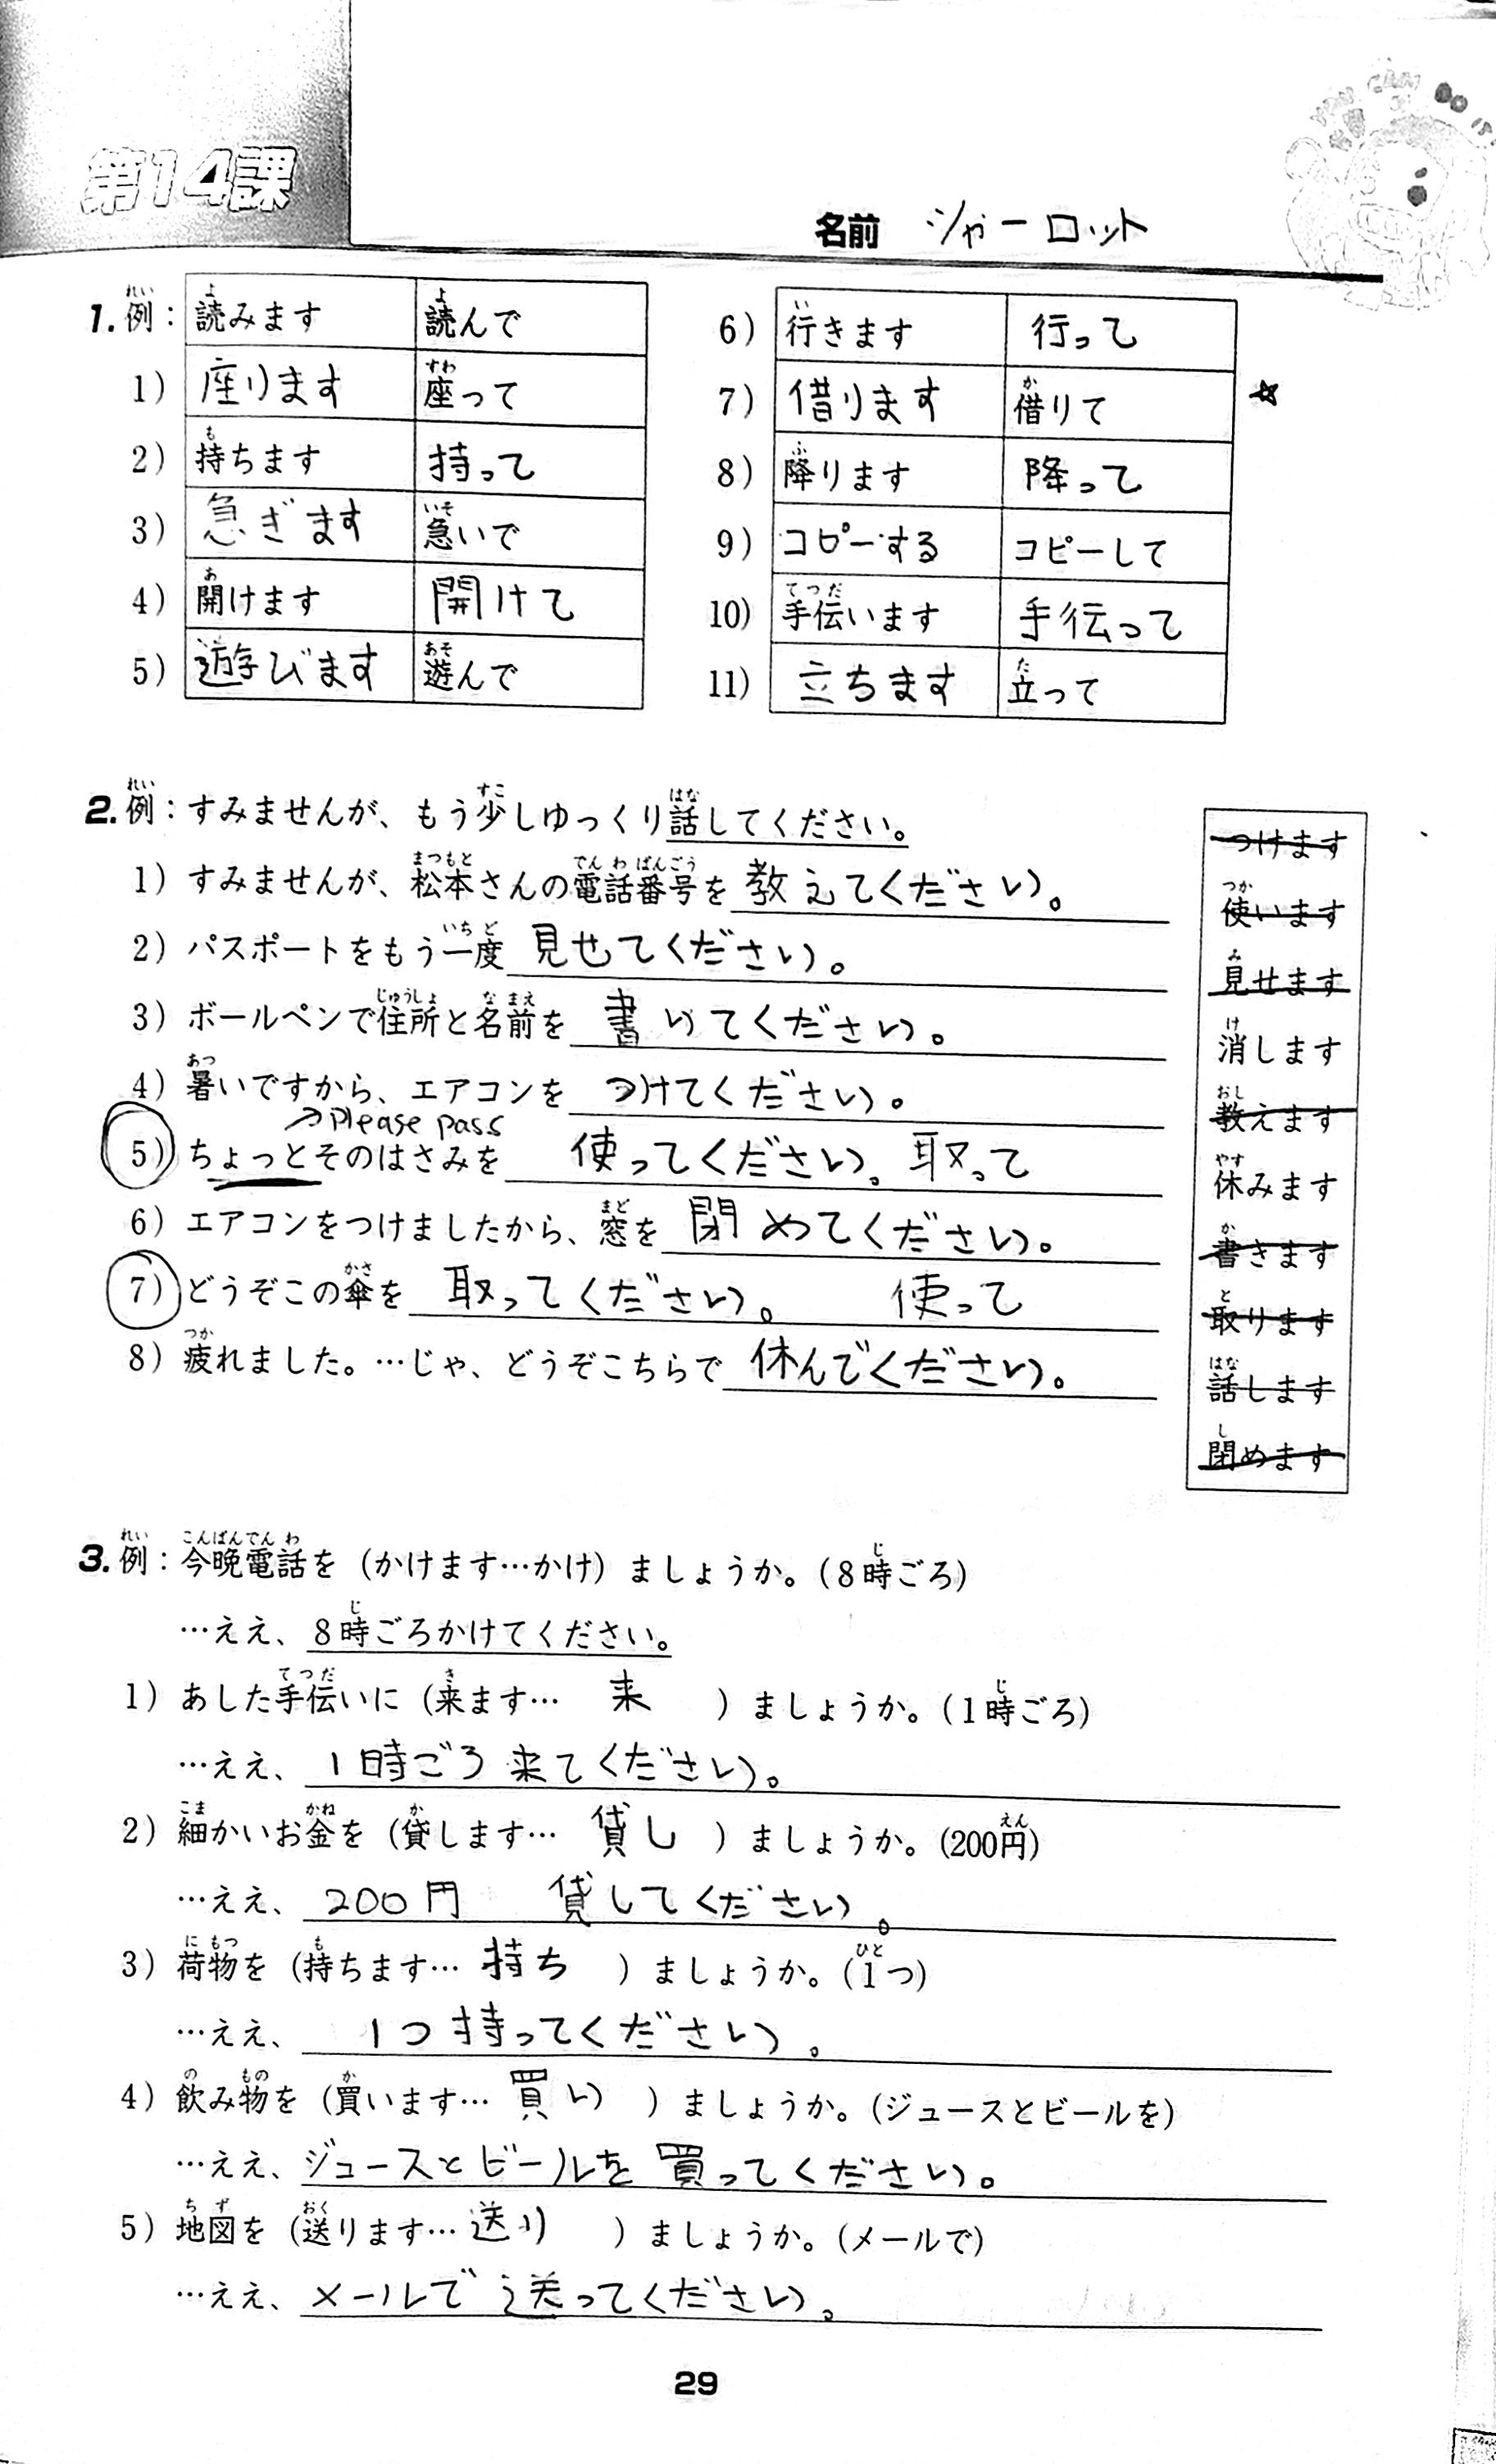 第14課
YOU CAN DO IT
名前 シャーロット
1. 例: 読みます 読んで
1) 座ります 座って
2) 持ちます 持って
3) 急ぎます 急いで
4) 開けます 開けて
5) 遊びます 遊んで
6) 行きます 行って
7) 借ります 借りて ☆
8) 降ります 降って
9) コピーする コピーして
10) 手伝います 手伝って
11) 立ちます 立って
2. 例: すみませんが、もう少しゆっくり話してください。
1) すみませんが、松本さんの電話番号を 教えてください。
2) パスポートをもう一度 見せてください。
3) ボールペンで住所と名前を 書いてください。
4) 暑いですから、エアコンを つけてください。
→Please pass
5) ちょっとそのはさみを 使ってください。取って
6) エアコンをつけましたから、窓を 閉めてください。
7) どうぞこの傘を 取ってください。 使って
8) 疲れました。…じゃ、どうぞこちらで 休んでください。
つけます
使います
見せます
消します
教えます
休みます
書きます
取ります
話します
閉めます
3. 例: 今晩電話を(かけます…かけ)ましょうか。(8時ごろ)
…ええ、8時ごろかけてください。
1) あした手伝いに(来ます… 来 )ましょうか。(1時ごろ)
…ええ、1時ごろ来てください。
2) 細かいお金を(貸します… 貸し )ましょうか。(200円)
…ええ、200円 貸してください。
3) 荷物を(持ちます… 持ち )ましょうか。(1つ)
…ええ、1つ持ってください。
4) 飲み物を(買います… 買い )ましょうか。(ジュースとビールを)
…ええ、ジュースとビールを買ってください。
5) 地図を(送ります… 送り )ましょうか。(メールで)
…ええ、メールで送ってください。
29